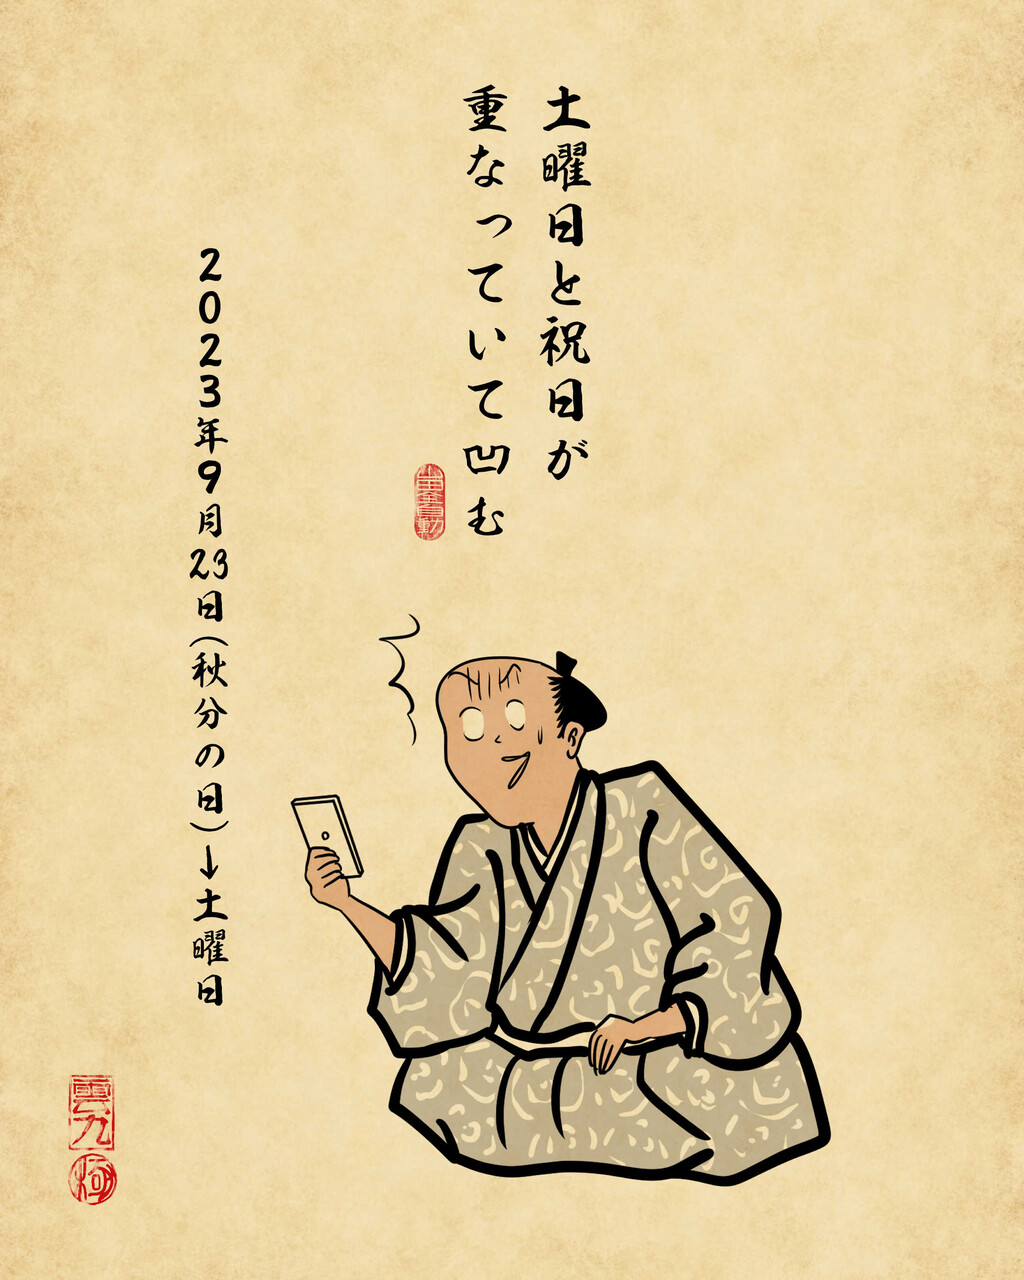 土曜日と祝日が
重なっていて凹む
2023年9月23日(秋分の日)→土曜日